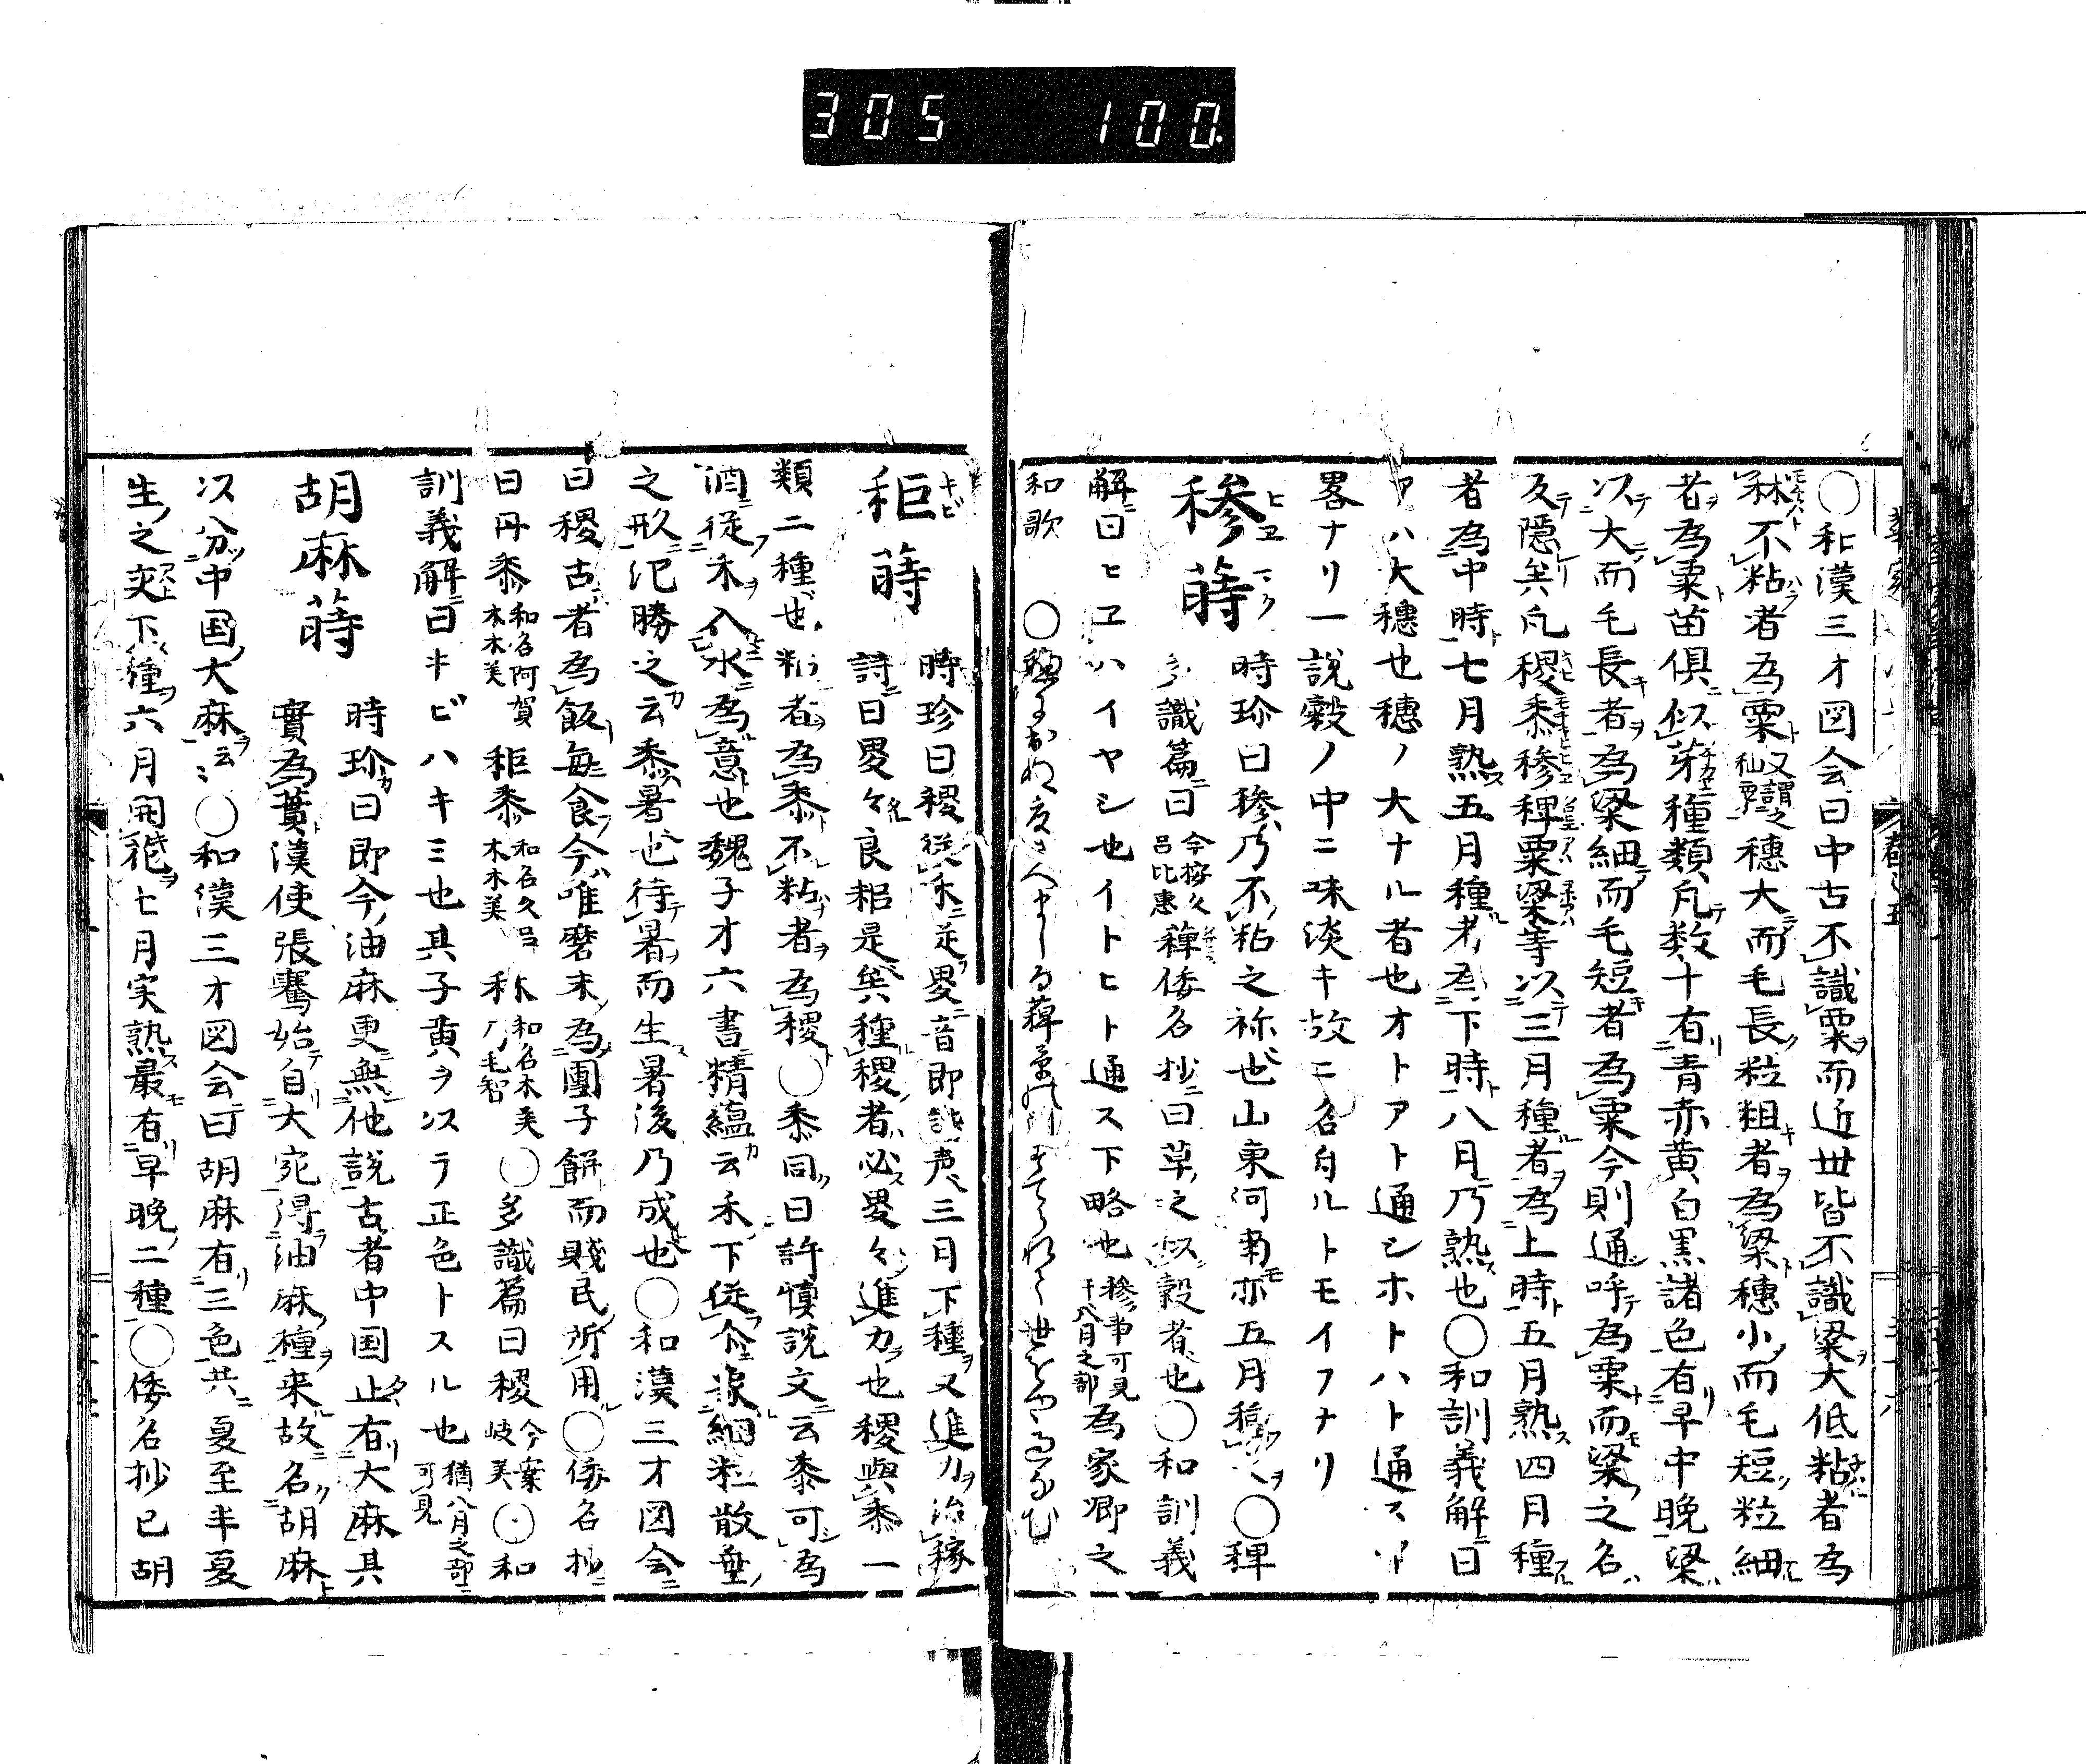 305 100.
○和漢三才図会曰中古不識粟而近世皆不識粱大低粘者為
秫不粘者為粟又謂之秈粟穂大而毛長粒粗者為粱穂小而毛短粒細
者為粟苗俱似茅種類凡数十有青赤黄白黒諸色有早中晩粱
以大而毛長者為粱細而毛短者為粟今則通呼為粟而粱之名
反隠矣凡稷黍穇稗粟粱等以三月種者為上時五月熟四月種
者為中時七月熟五月種者為下時八月乃熟也○和訓義解曰
アハ大穂也穂ノ大ナル者也オトアト通シホトハト通ス
畧ナリ一説穀ノ中ニ味淡キ故ニ名付ルトモイフナリ
穇蒔 時珍曰穇乃不粘之称也山東河南亦五月種之○稗
多識篇曰今按久呂比恵稗倭名抄曰草之似穀者也○和訓義
解曰ヒヱハイヤシ也イトヒト通ス下略也穇事可見十八月之部為家卿之
和歌
秬蒔 時珍曰稷従禾従畟音即諧声三月下種又進力治稼
詩曰畟々良耜是矣種稷者必畟々進力也稷與黍一
類二種也粘者為黍不粘者為稷○黍同曰許慎説文云黍可為
酒従禾入水為意也魏子才六書精蘊云禾下従氽象細粒散垂
之形氾勝之云黍暑也待暑而生暑後乃成也○和漢三才図会
曰稷古者為飯毎食今唯磨末為團子餅而賤民所用○倭名抄
曰丹黍和名阿賀木木美秬黍和名久呂木木美秫和名木美ノ毛智○多識篇曰稷今案岐美○和
訓義解曰キビハキミ也其子黄ヲ以テ正色トスル也猶八月之部可見
胡麻蒔 時珍曰即今油麻更無他説古者中国止有大麻其
實為蕡漢使張騫始自大宛得油麻種来故名胡麻
以分中国大麻云々○和漢三才図会曰胡麻有三色共夏至半夏
生之夾下種六月開花七月実熟最有早晩二種○倭名抄曰胡